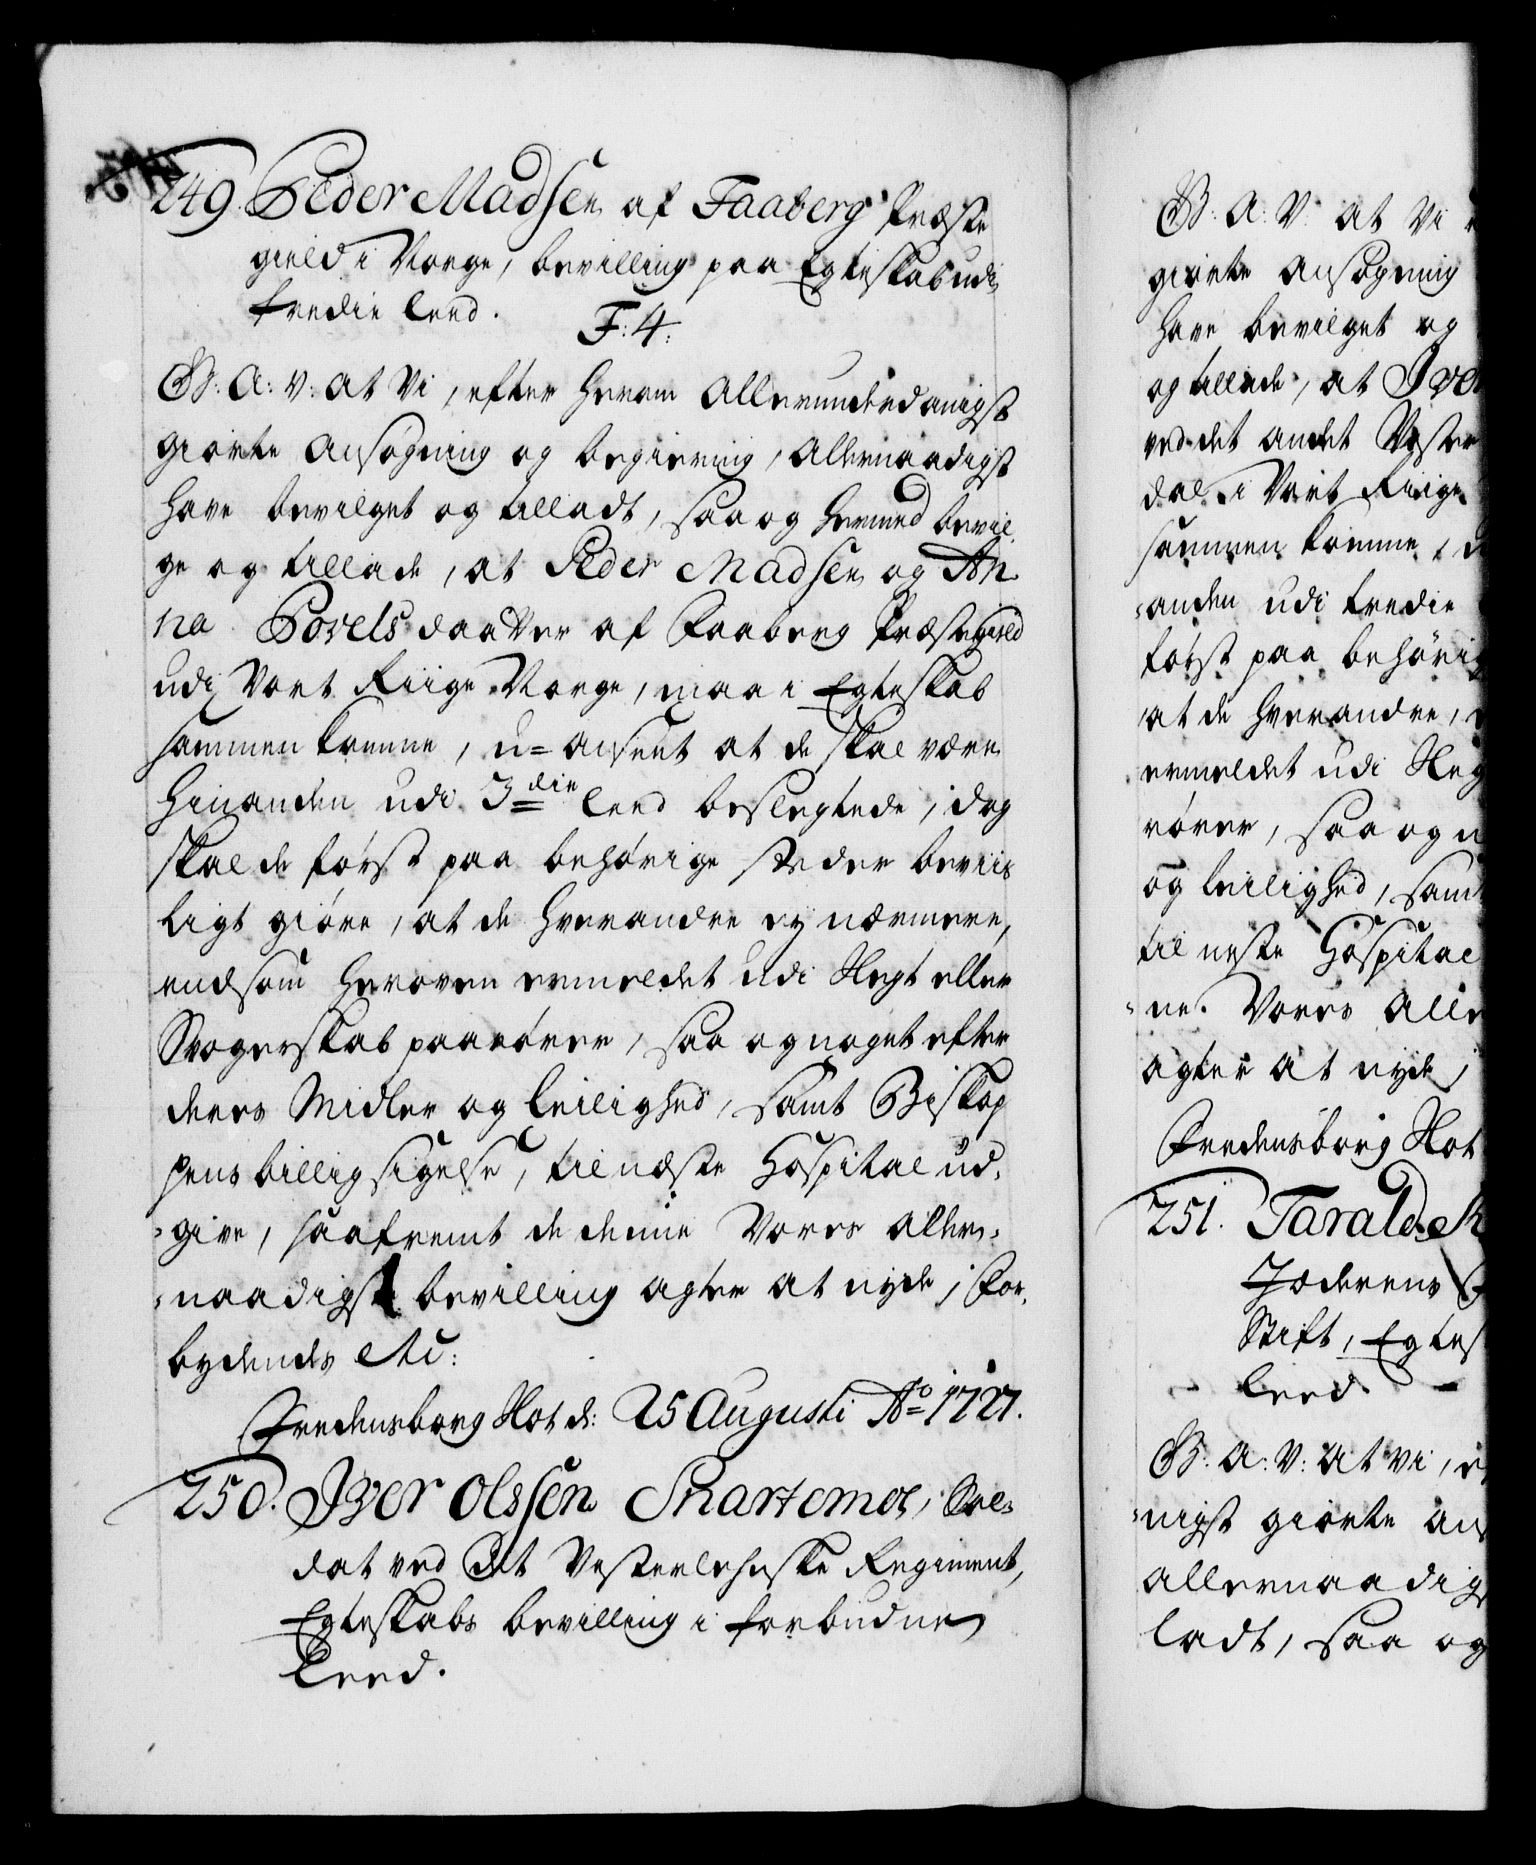 249. Peder Madsen af Faaberg Præste
gield i Norge, bevilling paa Egteskab udi
tredie leed.
F: 4:
G: A: V: at Vi, efter herom allerunderdanigst
giorte ansøgning og begiering, allernaadigst
have bevilget og tilladt, saa og hermed bevil
ge og tillade, at Peder Madsen og An
na Povels daatter af Faaberg Præstegield
udi Vort Riige Norge, maa i Egteskab
sammen komme, u= anseet at de skal være
hinanden udi 3die leed beslegtede, dog
skal de først paa behørige stæder beviis
ligt giøre, at de hverandre ey nærmere,
end som heroven ermeldet udi Slegt eller
Svogerskab paarører, saa og noget efter
deres Midler og leilighed, samt Biskop
pens billig sigelse, til næste Hospital ud=
=give, saafremt de denne Vores aller=
=naadigst bevilling agter at nyde, For=
bydendes etc:
Fredensborg Slot d: 25 Augusti Ao 1727.
250. Iver Olssen Snartemoe, Sol=
dat ved Det Vesterlehnske Regiment,
Egteskabs bevilling i forbudne
Leed.
G: A: V: at Vi
giorte ansøgning
have bevilget og
og tillade, at Iver
ved det andet Vester
dal i Vort Riige
sammen komme, d
=anden udi tredie
først paa behørig
at de hverandre,
ermeldet udi Sleg
rører, saa og n
og leilighed, samt
til neste Hospital
=ne. Vores Aller
agter at nyde,
Fredensborg Slot
251. Tarald
Jæderens
Stift, Egtes
- leed. -
G: A: V: at vi,
=nigst giorte ans
allernaadigs
ladt, saa og